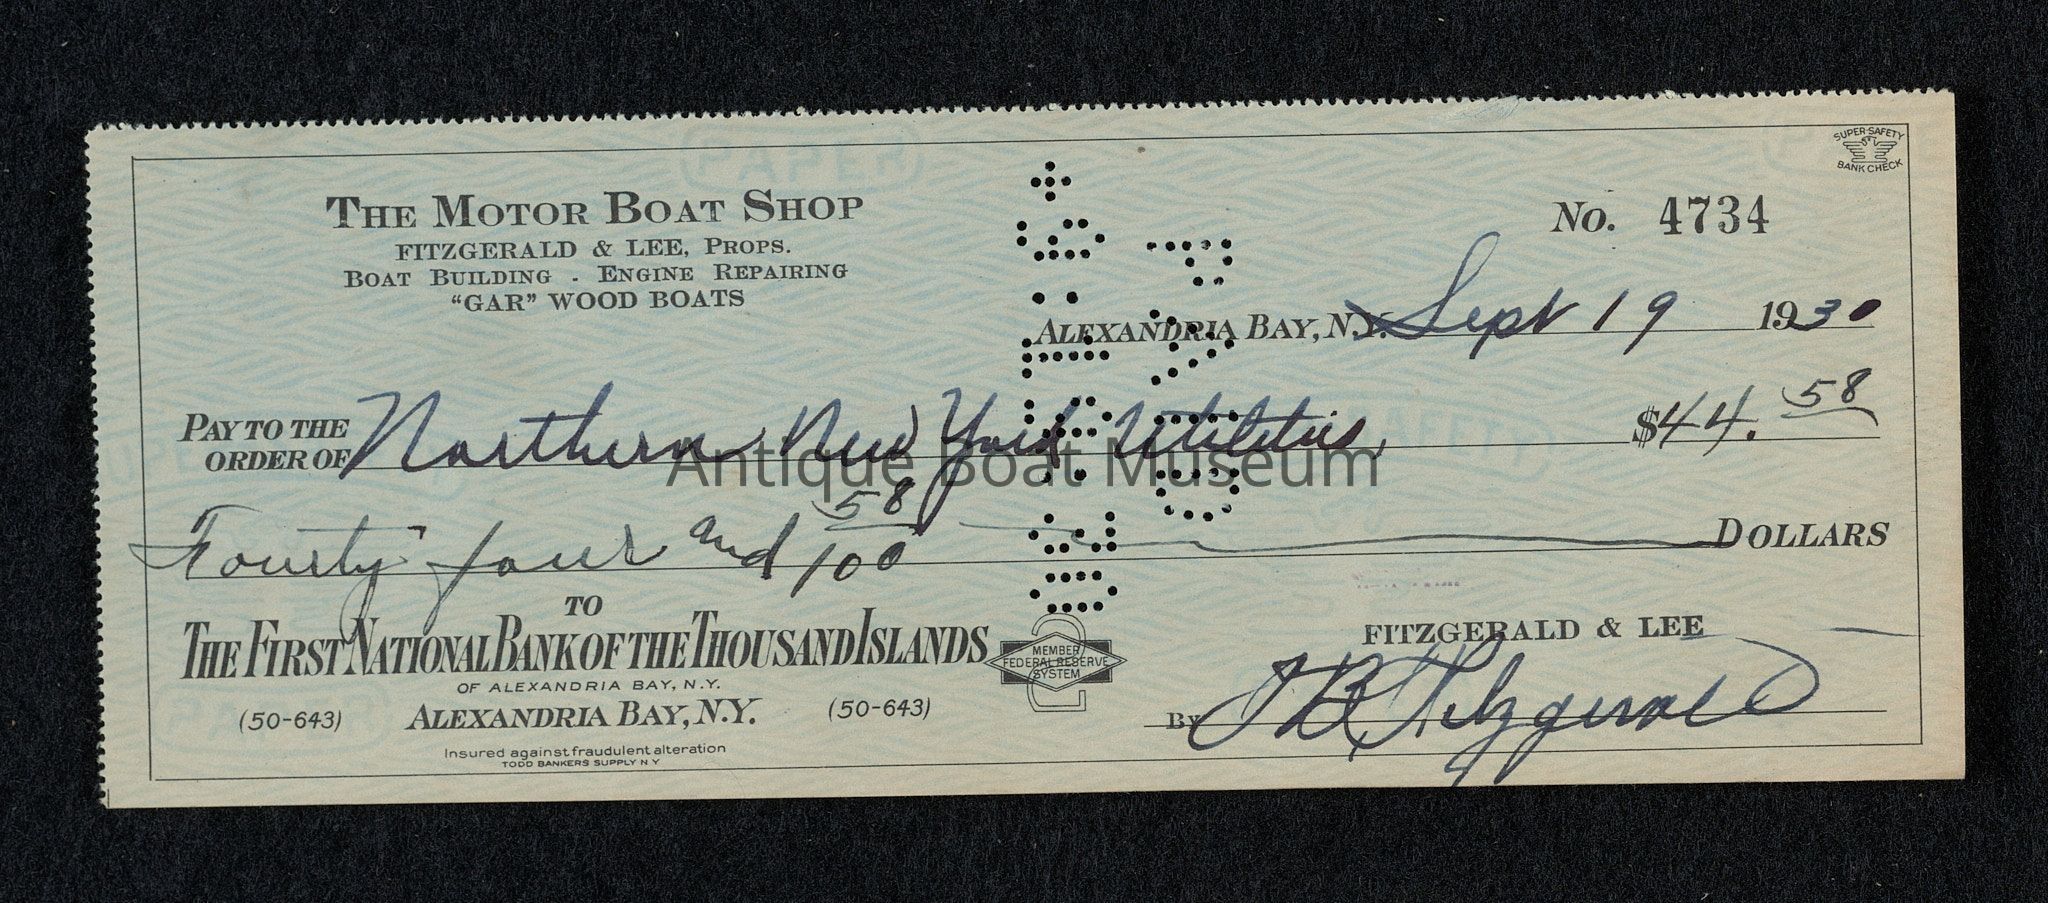 SUPER-SAFETY
BANK CHECK
THE MOTOR BOAT SHOP
FITZGERALD & LEE, PROPS.
BOAT BUILDING - ENGINE REPAIRING
"GAR" WOOD BOATS
No. 4734
ALEXANDRIA BAY, N.Y. Sept 19 1930
PAY TO THE ORDER OF Northern New York Utilities, $44.58
Antique Boat Museum
Fourty four and 58/100 DOLLARS
TO
THE FIRST NATIONAL BANK OF THE THOUSAND ISLANDS
OF ALEXANDRIA BAY, N.Y.
(50-643) ALEXANDRIA BAY, N.Y. (50-643)
MEMBER
FEDERAL RESERVE
SYSTEM
FITZGERALD & LEE
By Fitzgerald
Insured against fraudulent alteration
TODD BANKERS SUPPLY N Y